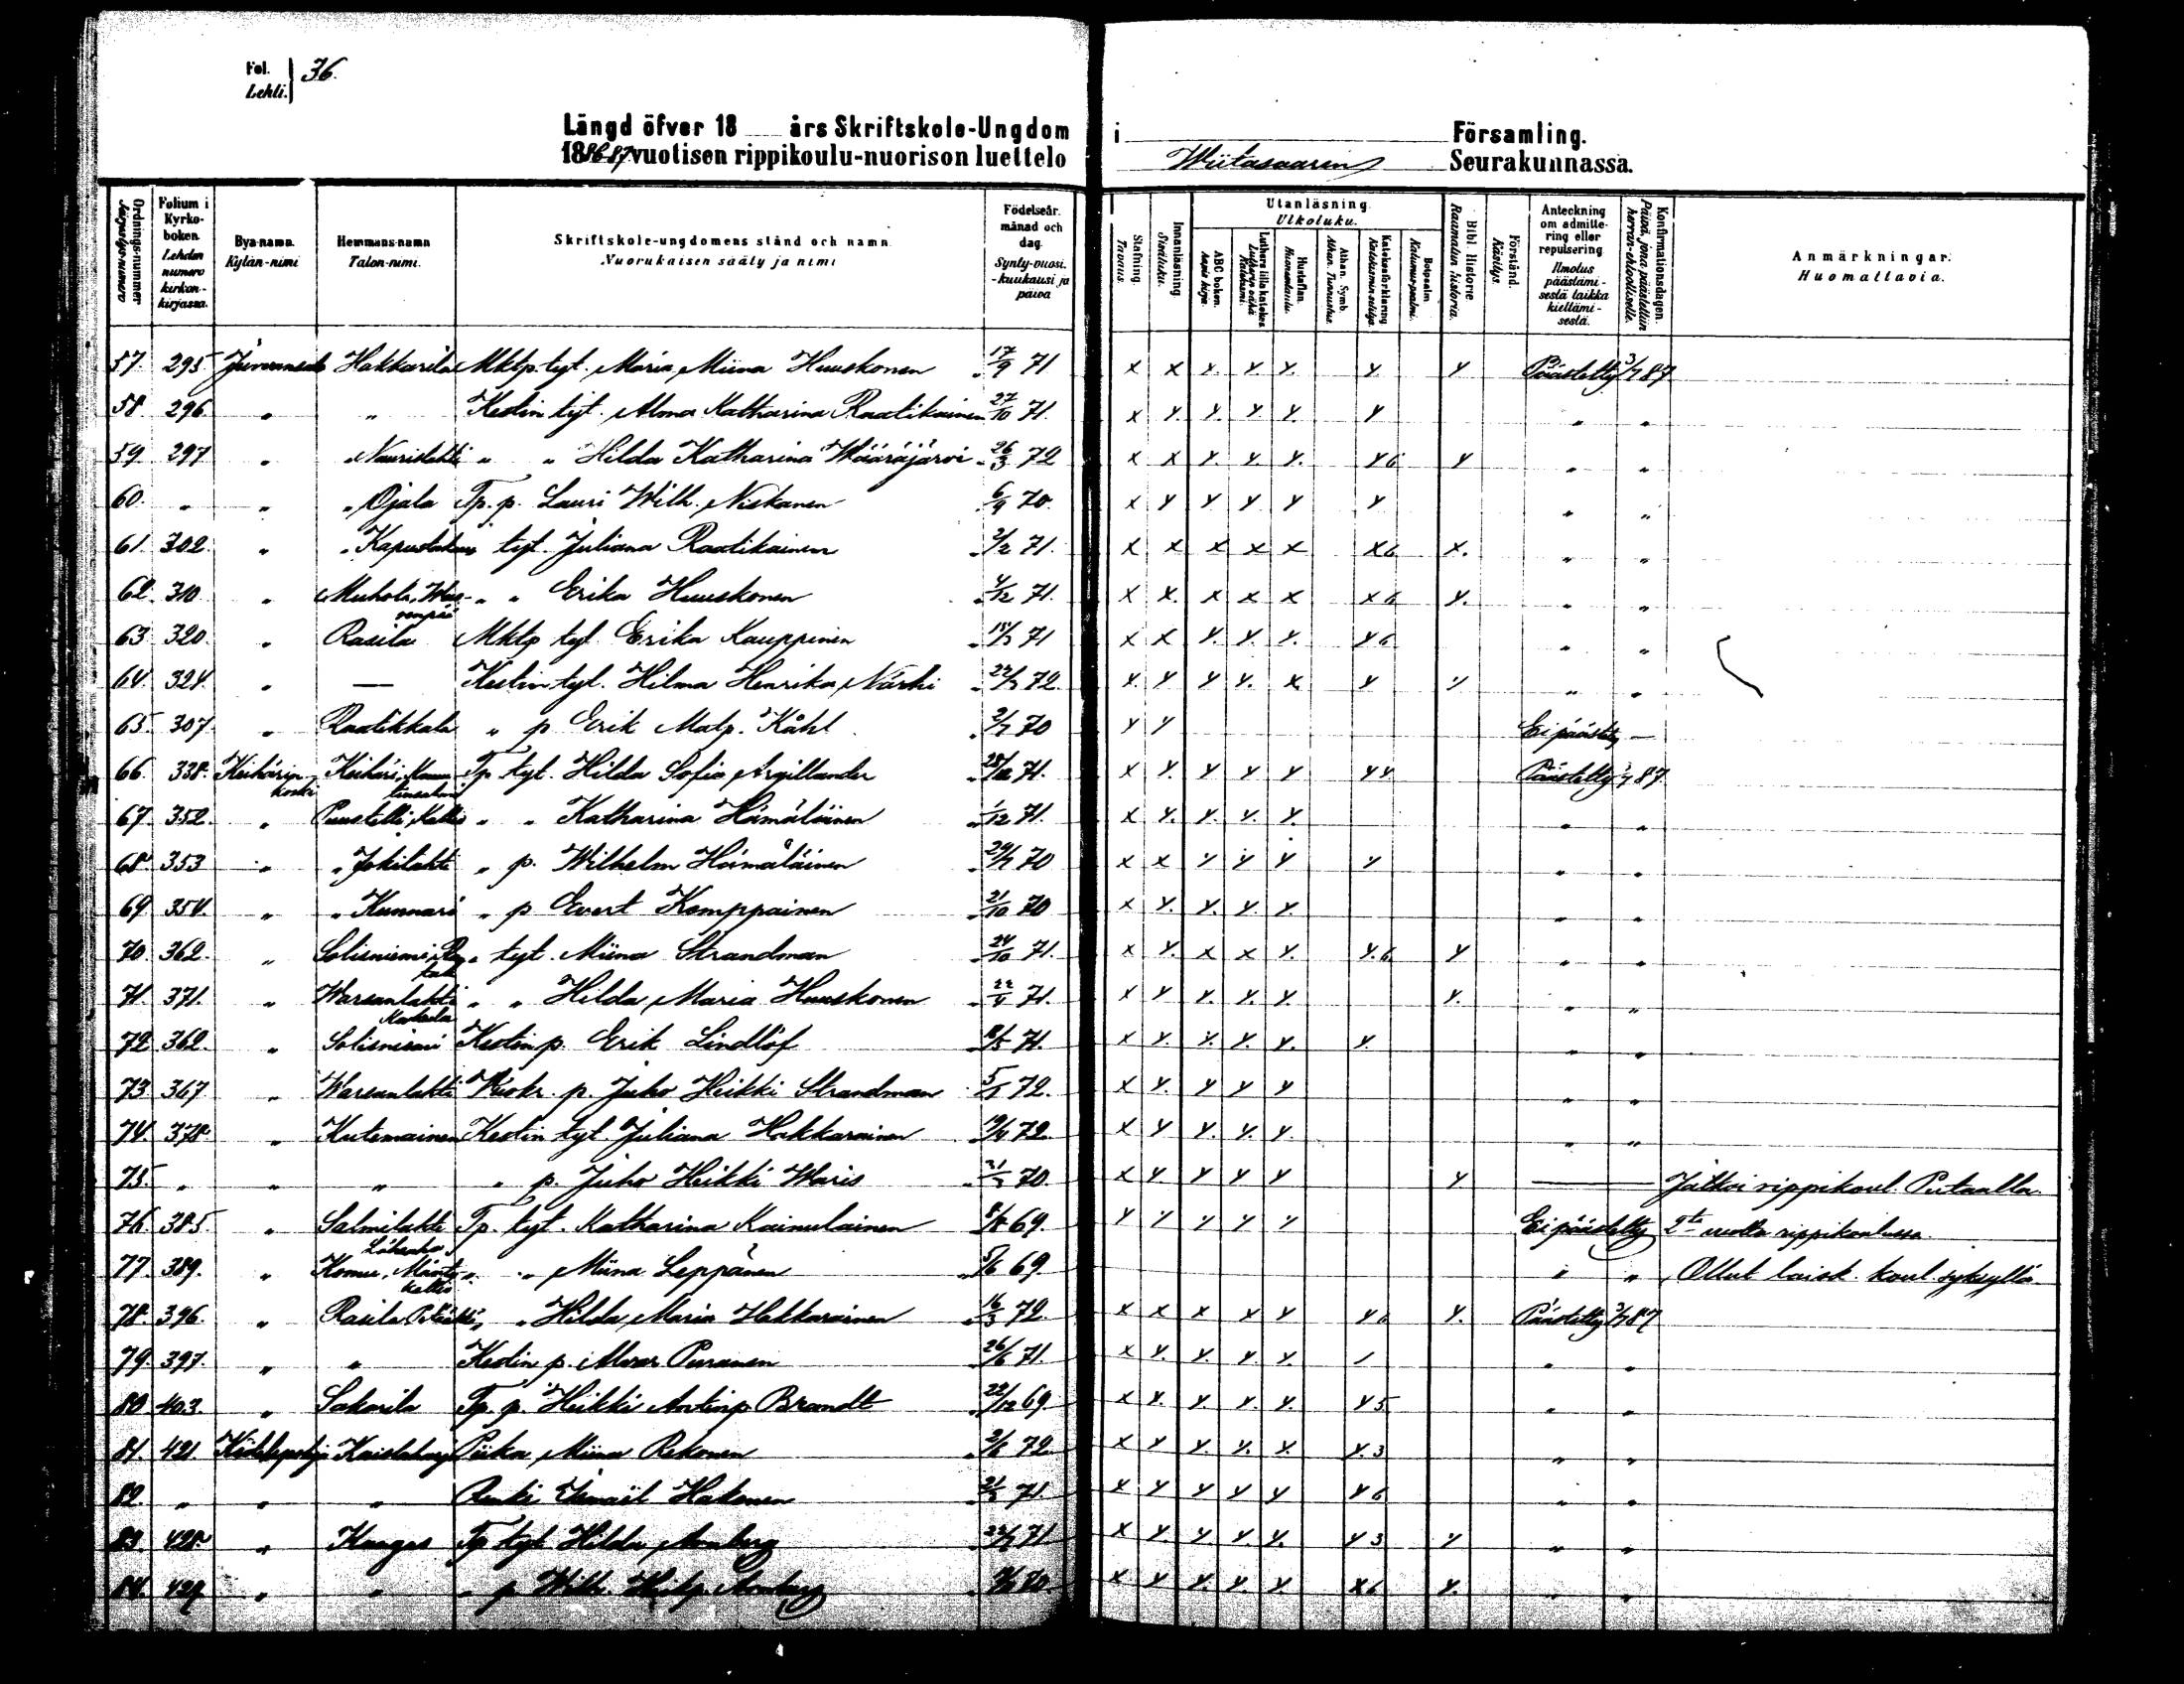 Fol. Lehti. 36.
Längd öfver 18 års Skriftskole-Ungdom i Församling.
1886-87 vuotisen rippikoulu-nuorison luettelo Wiitasaaren Seurakunnassa.
Ordnings-nummer Järjestys-numero
Folium i Kyrko-boken. Lehden numero kirkon-kirjassa.
Bya-namn. Kylän-nimi
Hemmans-namn Talon-nimi.
Skriftskole-ungdomens stånd och namn. Nuorukaisen sääty ja nimi
Födelseår. månad och dag. Synty-vuosi. -kuukausi ja päivä
Stafning. Tavaus.
Innanläsning Sisäluku.
Utanläsning Ulkoluku.
ABC boken. Aapis kirja.
Luthers lilla katekes Lutherin vähä Katekismi.
Hustaflan. Huoneentaulu.
Athan. Symb. Athan. Tunnustus.
Katekesförklaring Katekismin selitys.
Botpsalm. Katumus-psalmi.
Bibl. Historie Raamatun historia.
Förstånd. Käsitys.
Anteckning om admittering eller repulsering Ilmotus päästämisestä taikka kieltämisestä.
Konfirmationsdagen. Päivä, jona päästettiin herran-ehtoolliselle.
Anmärkningar. Huomattavia.
57. 295 Hakkarila Mklp. tyt. Maria Miina Huuskonen 17/9 71 x x y. y. y. y. y Päästetty 3/7 87
58. 296. " " Kestin tyt. Alma Katharina Raatikainen 27/10 71. x y. y. y. y. y " "
59. 297 " " Naurislahti " " Hilda Katharina Wääräjärvi 26/3 72 x x y. y. y. y 6 y " "
60. " " " Ojala Tp. p. Lauri Wilh. Niskanen 6/9 70. x y y y y y " "
61. 302. " " tyt. Juliana Raatikainen 2/2 71. x x x x x x 6 x. " "
62. 310. " Muhola, " " Erika Huuskonen 4/12 71. x x. x x x x 6 y. " "
63 320. " Rasila Mklp tyt. Erika Kauppinen 71 x x y. y. y. y 6 " "
64. 324. " — Kestin tyt. Hilma Henrika Närhi 72. x. y y y. x y y " "
65. 307. " Raatikkala " p Erik Matp. Kåhl 2/7 70 y y Ei päästetty —
66. 338. Keihärinkoski Keihäri, Tp tyt. Hilda Sofia Argillander 71. x y. y y y y 4 Päästetty 87
67. 352. " " " Katharina Hämäläinen 1/12 71. x y. y. y. y. " "
68. 353 " " Jokilahti " p. Wilhelm Hämäläinen 70 x x y y y y " "
69. 354. " " Kunnari " p Evert Komppainen 21/10 70 x y. y. y. y. " "
70. 362. " Solisniemi, " tyt. Miina Strandman 24/10 71. x y. x x y. y. 6 y " "
71. 371. " Warsanlahti " " Hilda Maria Huuskonen 22/4 71. x y y. y. y. y. " "
72 362. " Solisniemi Kestin p. Erik Lindlöf 8/5 71. x y. y. y. y. y. " "
73 367 " Warsanlahti Ruok. p. Juho Heikki Strandman 72. x y. y y y " "
74. 378 " Kutemainen Kestin tyt. Juliana Hakkarainen 19/4 72. x y y. y. y. " "
75. " " " " p. Juho Heikki Waris 70. x y. y y y y. — Jätkoi rippikoul. Putaalla.
76. 385. " Salmilahti Tp. tyt. Katharina Kainulainen 69. y y y y y Ei päästetty 2ta vuotta rippikoulussa.
77. 389. " Komu, " " Miina Leppänen 5/6 69. " " Ollut laisk. koul. syksyllä
78. 396. " Rasila " " Hilda Maria Hakkarainen 16/3 72. x x x x y y 6 y. Päästetty 3/7 87
79. 397. " " Kestin p. Alvar Puranen 26/6 71. x y. y. y. y. / " "
80 403. " Sakarila Tp. p. Heikki Antinp. Brandt 22/12 69. x y. y. y. y. y 5 " "
81. 421. Piika Miina Rekonen 2/6 72. x y y. y. y. y. 3 " "
82. " " " Renki Ismail Hakonen 71. x y y y y y 6 " "
83. 428 " Kangas Tp tyt. Hilda 71 x y. y. y. y. y 3 y " "
84. 429 " " " p Wilh. x y y. y. y x 6 y. " "